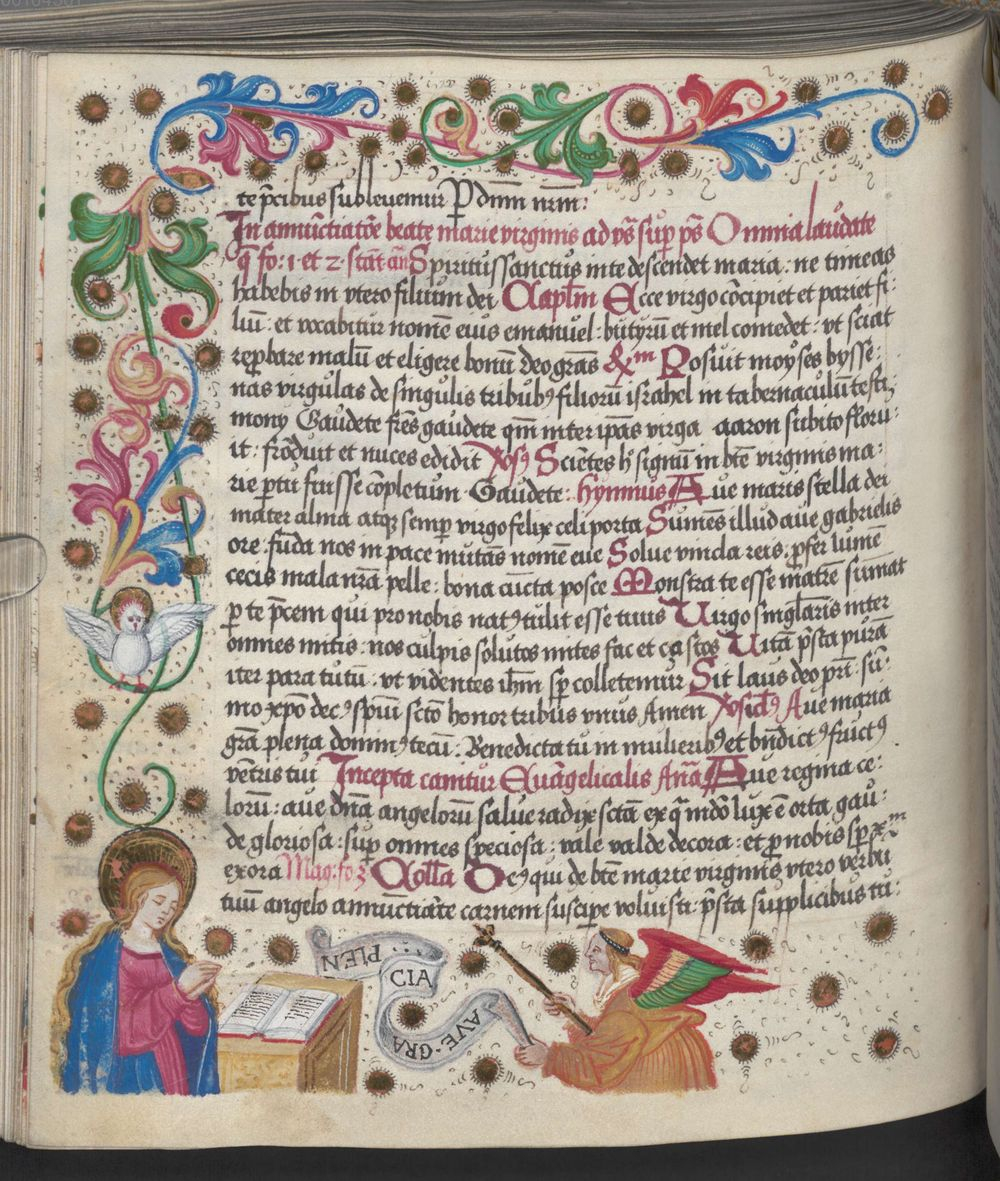 te p̄cibus subleuemur P dn̄m nr̄m:
In annūctiatōe beate marie virginis ad vs̄ sup̱ ps̄ Omnia laudate
q̄ fo: 1 et 2 stāt an̄ Spiritus sanctus in te descendet maria : ne timeas
habebis in vtero filium dei Capl̄m Ecce virgo cōcipiet et pariet fi:
liū : et vocabitur nomē eius emanuel : butyrū et mel comedet : vt sciat
rep̱bare malū et eligere bonū deo grās &m̄ Posuit moyses bysse:
nas virgulas de singulis tribubꝰ filiorū israhel in tabernaculū testi
mony Gaudete frēs gaudete qm̄ inter ip̄as virga aaron subito floru:
it : frōduit et nuces edidit Vsꝰ Sciētes h̄ signū in bt̄e virginis ma:
rie p̱tu fuisse cōpletum Gaudete : hymnus Aue maris stella dei
mater alma atqꝫ semp̱ virgo felix celi porta Sumēs illud aue gabrielis
ore : fūda nos in pace mutās nomē eue Solue vincla reis : p̱fer lumē
cecis mala nrā pelle : bona cūcta posce Monstra te esse matrē sumat
p̱ te p̄cem qui pro nobis natꝰ tulit esse tuus Virgo singl̄aris inter
omnes mitis : nos culpis solutos mites fac et castos Vitā p̄sta purā
iter para tutū : vt videntes ih̄m sp̱ colletemur Sit laus deo pr̄i : sū:
mo xp̄o decꝰ spiūi sctō honor tribus vnus Amen Vsiclꝰ Aue maria
grā plena dominꝰ tecū : Benedicta tu in mulieribꝰ et bn̄dictꝰ fructꝰ
vētris tui Incepta cantur Euāgelicalis Anā Aue regina ce:
lorū : aue dn̄a angelorū salue radix sctā ex q̄ mūdo lux ē orta gau:
de gloriosa : sup̱ omnes speciosa : vale valde decora : et p̱ nobis sp̱ xm̄
exora Mag: fo 3 Coll̄a Deꝰ qui de bt̄e marie virginis vtero verbū
tuū angelo annūctiāte carnem suscipe voluisti : p̄sta supplicibus tu:
AVE·GRA
CIA
PLEN